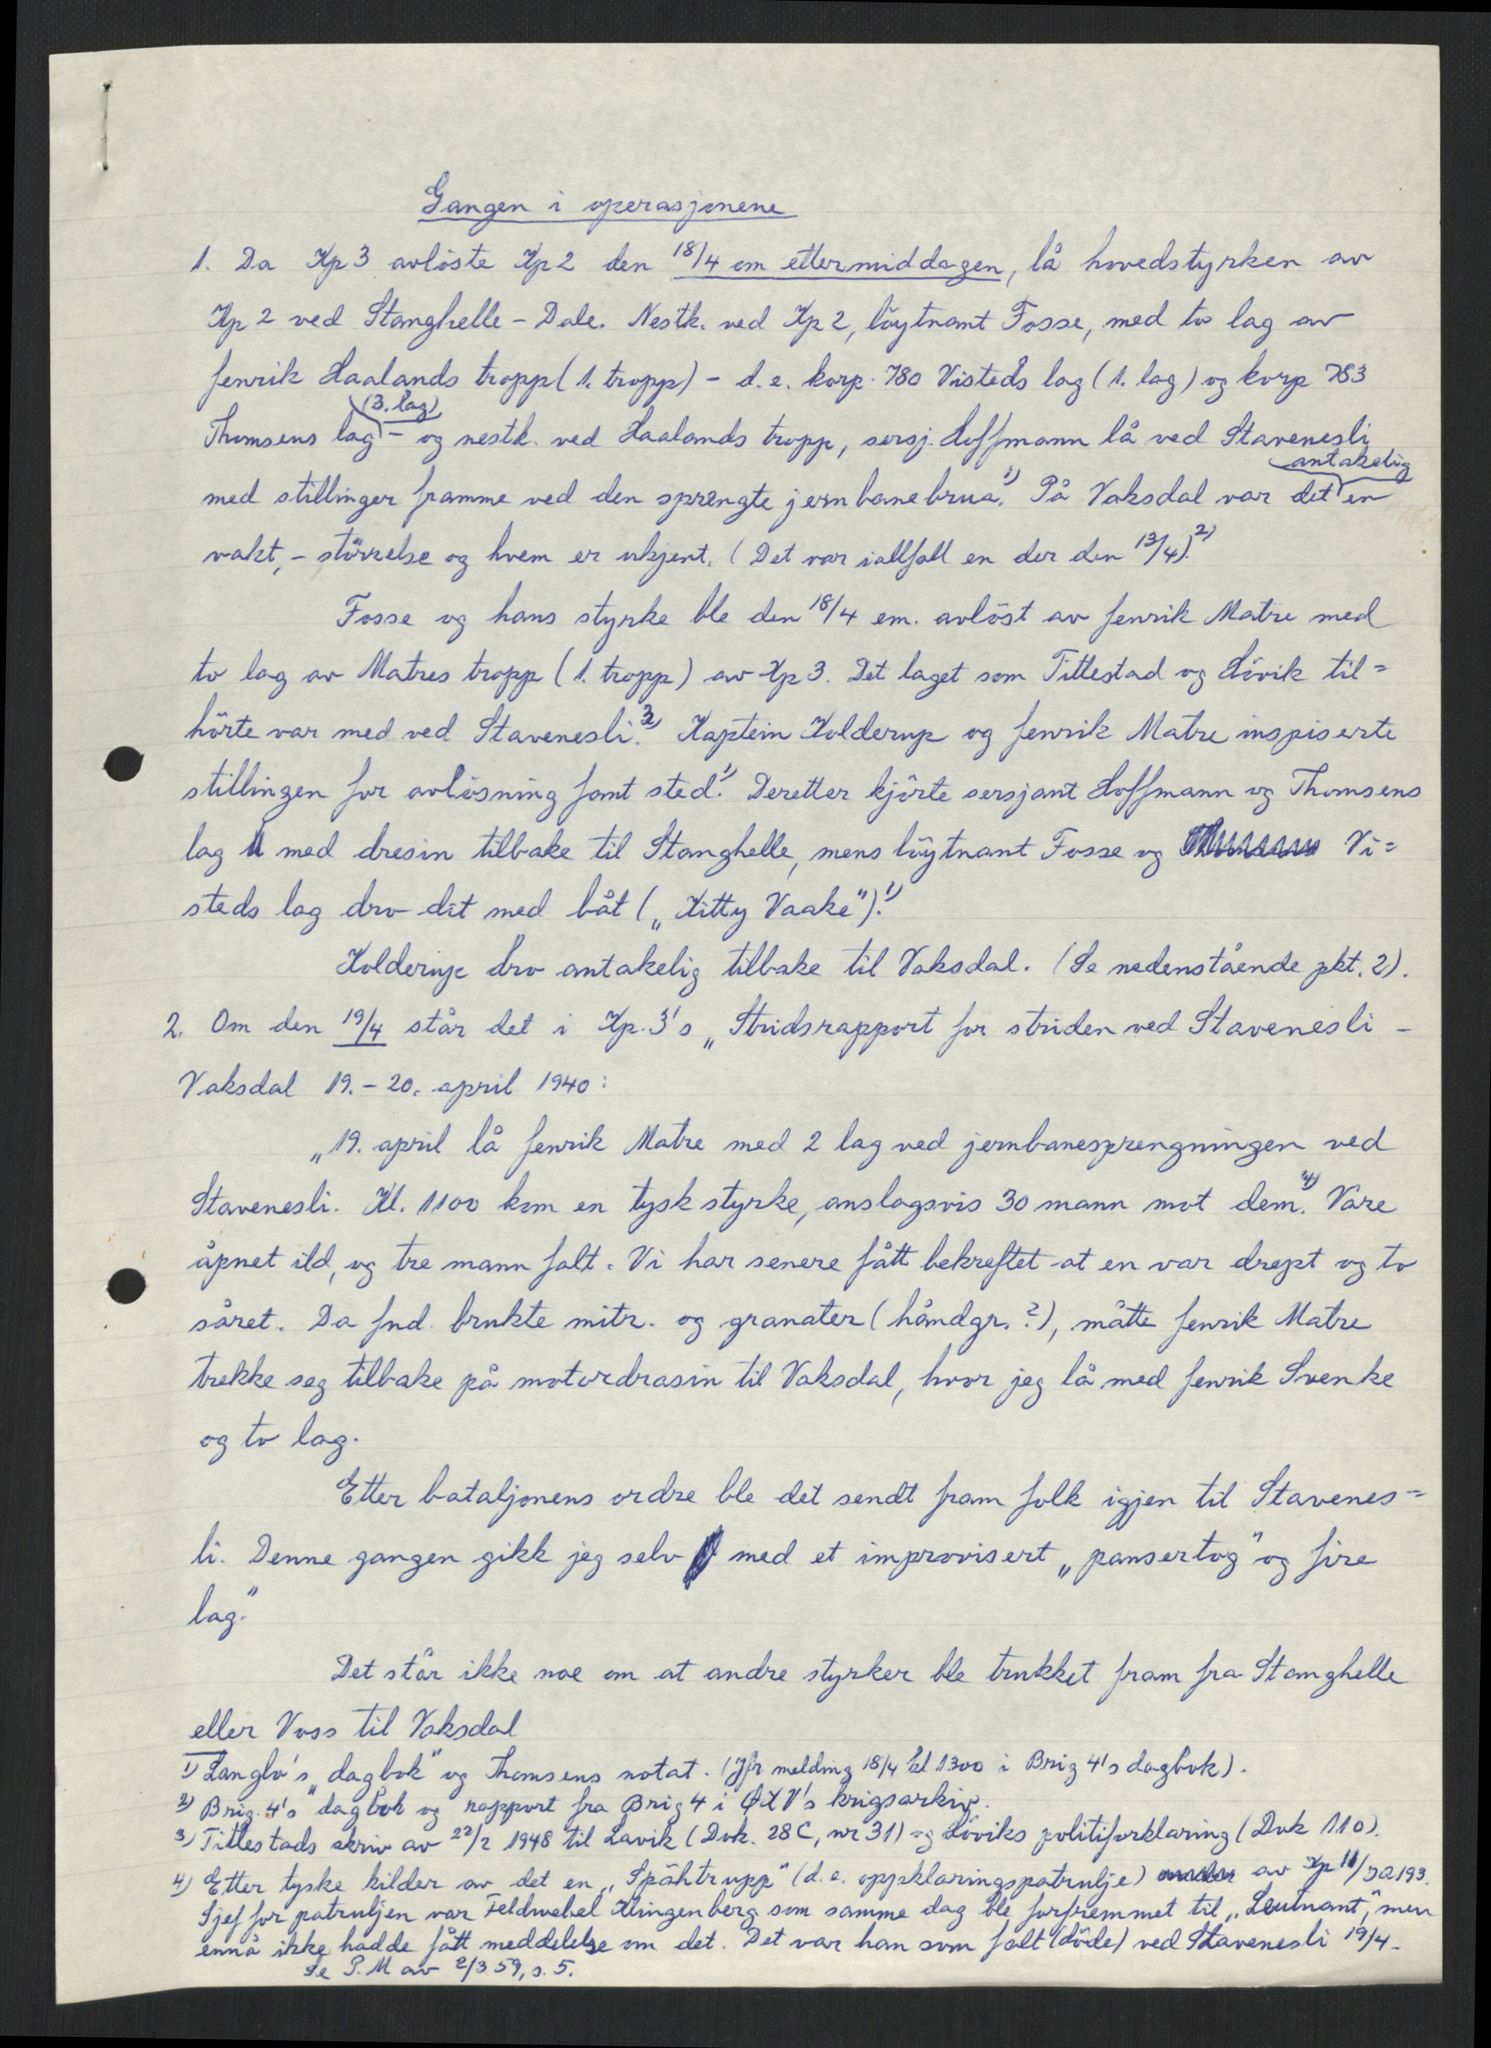 Gangen i operasjonene
1. Da Kp 3 avløste Kp 2 den 18/4 om ettermiddagen, lå hovedstyrken av
Kp 2 ved Stanghelle - Dale. Nestk. ved Kp 2, löytnant Fosse, med to lag av
fenrik Haalands tropp (1. tropp) - d.e. korp. 780 Visteds lag (1. lag) og korp 783
(3. lag)
Thomsens lag - og nestk. ved Haalands tropp, sersj. Hoffmann lå ved Stavenesli
antakelig
med stillinger framme ved den sprengte jernbanebrua.1) På Vaksdal var det en
vakt, - störrelse og hvem er ukjent. (Det var iallfall en der den 13/4).2)
Fosse og hans styrke ble den 18/4 em. avlöst av fenrik Matre med
to lag av Matres tropp (1. tropp) av Kp 3. Det laget som Tittestad og Hövik til=
hörte var med ved Stavenesli.3) Kaptein Holderup og fenrik Matre inspiserte
stillingen for avlösning fant sted.1) Deretter kjörte sersjant Hoffmann og Thomsens
lag med dresin tilbake til Stanghelle, mens löytnant Fosse og Vi=
steds lag dro dit med båt („Kitty Vaake").1)
Holderup dro antakelig tilbake til Vaksdal. (Se nedenstående pkt. 2).
2. Om den 19/4 står det i Kp. 3's „Stridsrapport for striden ved Stavenesli -
Vaksdal 19. - 20. april 1940:
„19. april lå fenrik Matre med 2 lag ved jernbanesprengningen ved
Stavenesli. Kl. 1100 kom en tysk styrke, anslagsvis 30 mann mot dem.4) Våre
åpnet ild, og tre mann falt. Vi har senere fått bekreftet at en var drept og to
såret. Da fnd. brukte mitr. og granater (håndgr.?), måtte fenrik Matre
trekke seg tilbake på motordrasin til Vaksdal, hvor jeg lå med fenrik Svenke
og to lag.
Etter bataljonens ordre ble det sendt fram folk igjen til Stavenes=
li. Denne gangen gikk jeg selv med et improvisert „pansertog" og fire
lag."
Det står ikke noe om at andre styrker ble trukket fram fra Stanghelle
eller Voss til Vaksdal
1) Langlo's „dagbok" og Thomsens notat. (Jfr melding 18/4 kl 1300 i Brig 4's dagbok).
2) Brig. 4's dagbok og rapport fra Brig 4 i ØKV's krigsarkiv.
3) Tittestads skriv av 22/2 1948 til Lavik (Dok. 28C, nr 31) og Höviks politiforklaring (Dok 110).
4) Etter tyske kilder av det en „Spähtrupp" (d.e. oppklaringspatrulje) av Kp 11/JR193.
Sjef for patruljen var Feldwebel Klingenberg som samme dag ble forfremmet til „Leutnant", men
ennå ikke hadde fått meddelelse om det. Det var han som falt (döde) ved Stavenesli 19/4.
Se P.M av 2/3 59, s. 5.